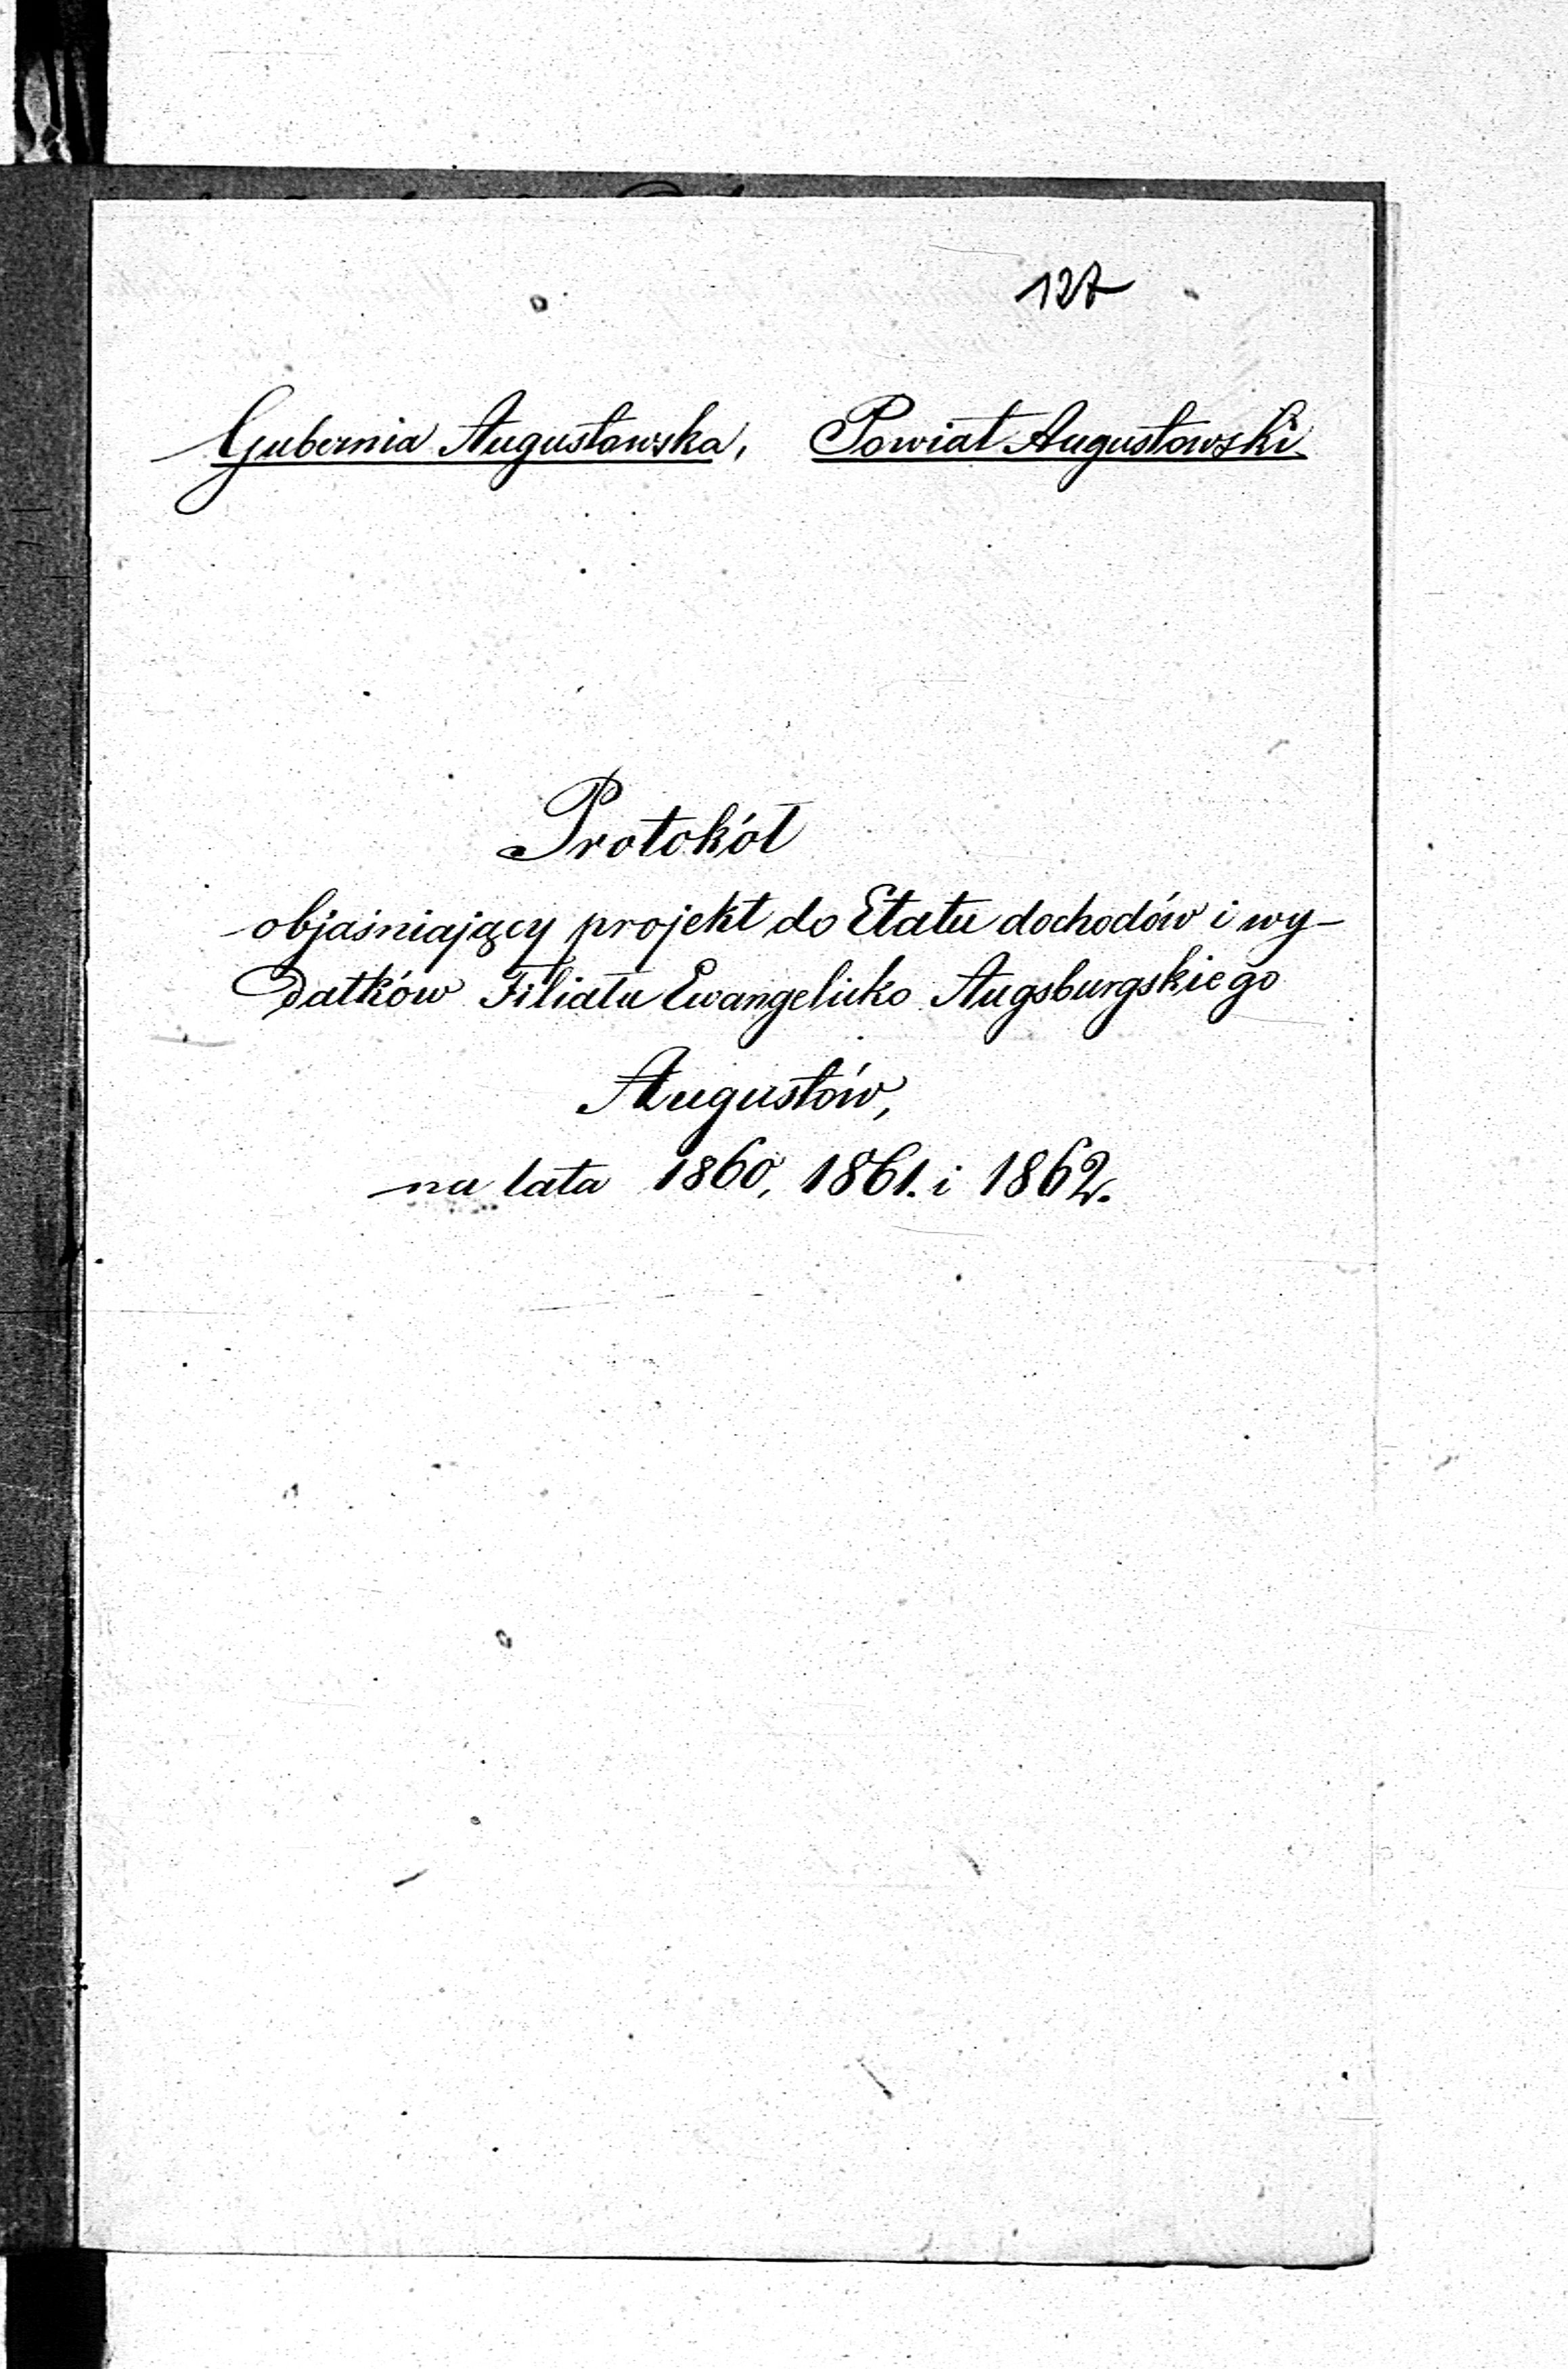 127
Gubernia Augustowska, Powiat Augustowski
Protokół
objaśniający projekt do Etatu dochodów i wy-
datków Filiału Ewangelicko Augsburgskiego
Augustów,
na lata 1860, 1861. i 1862.